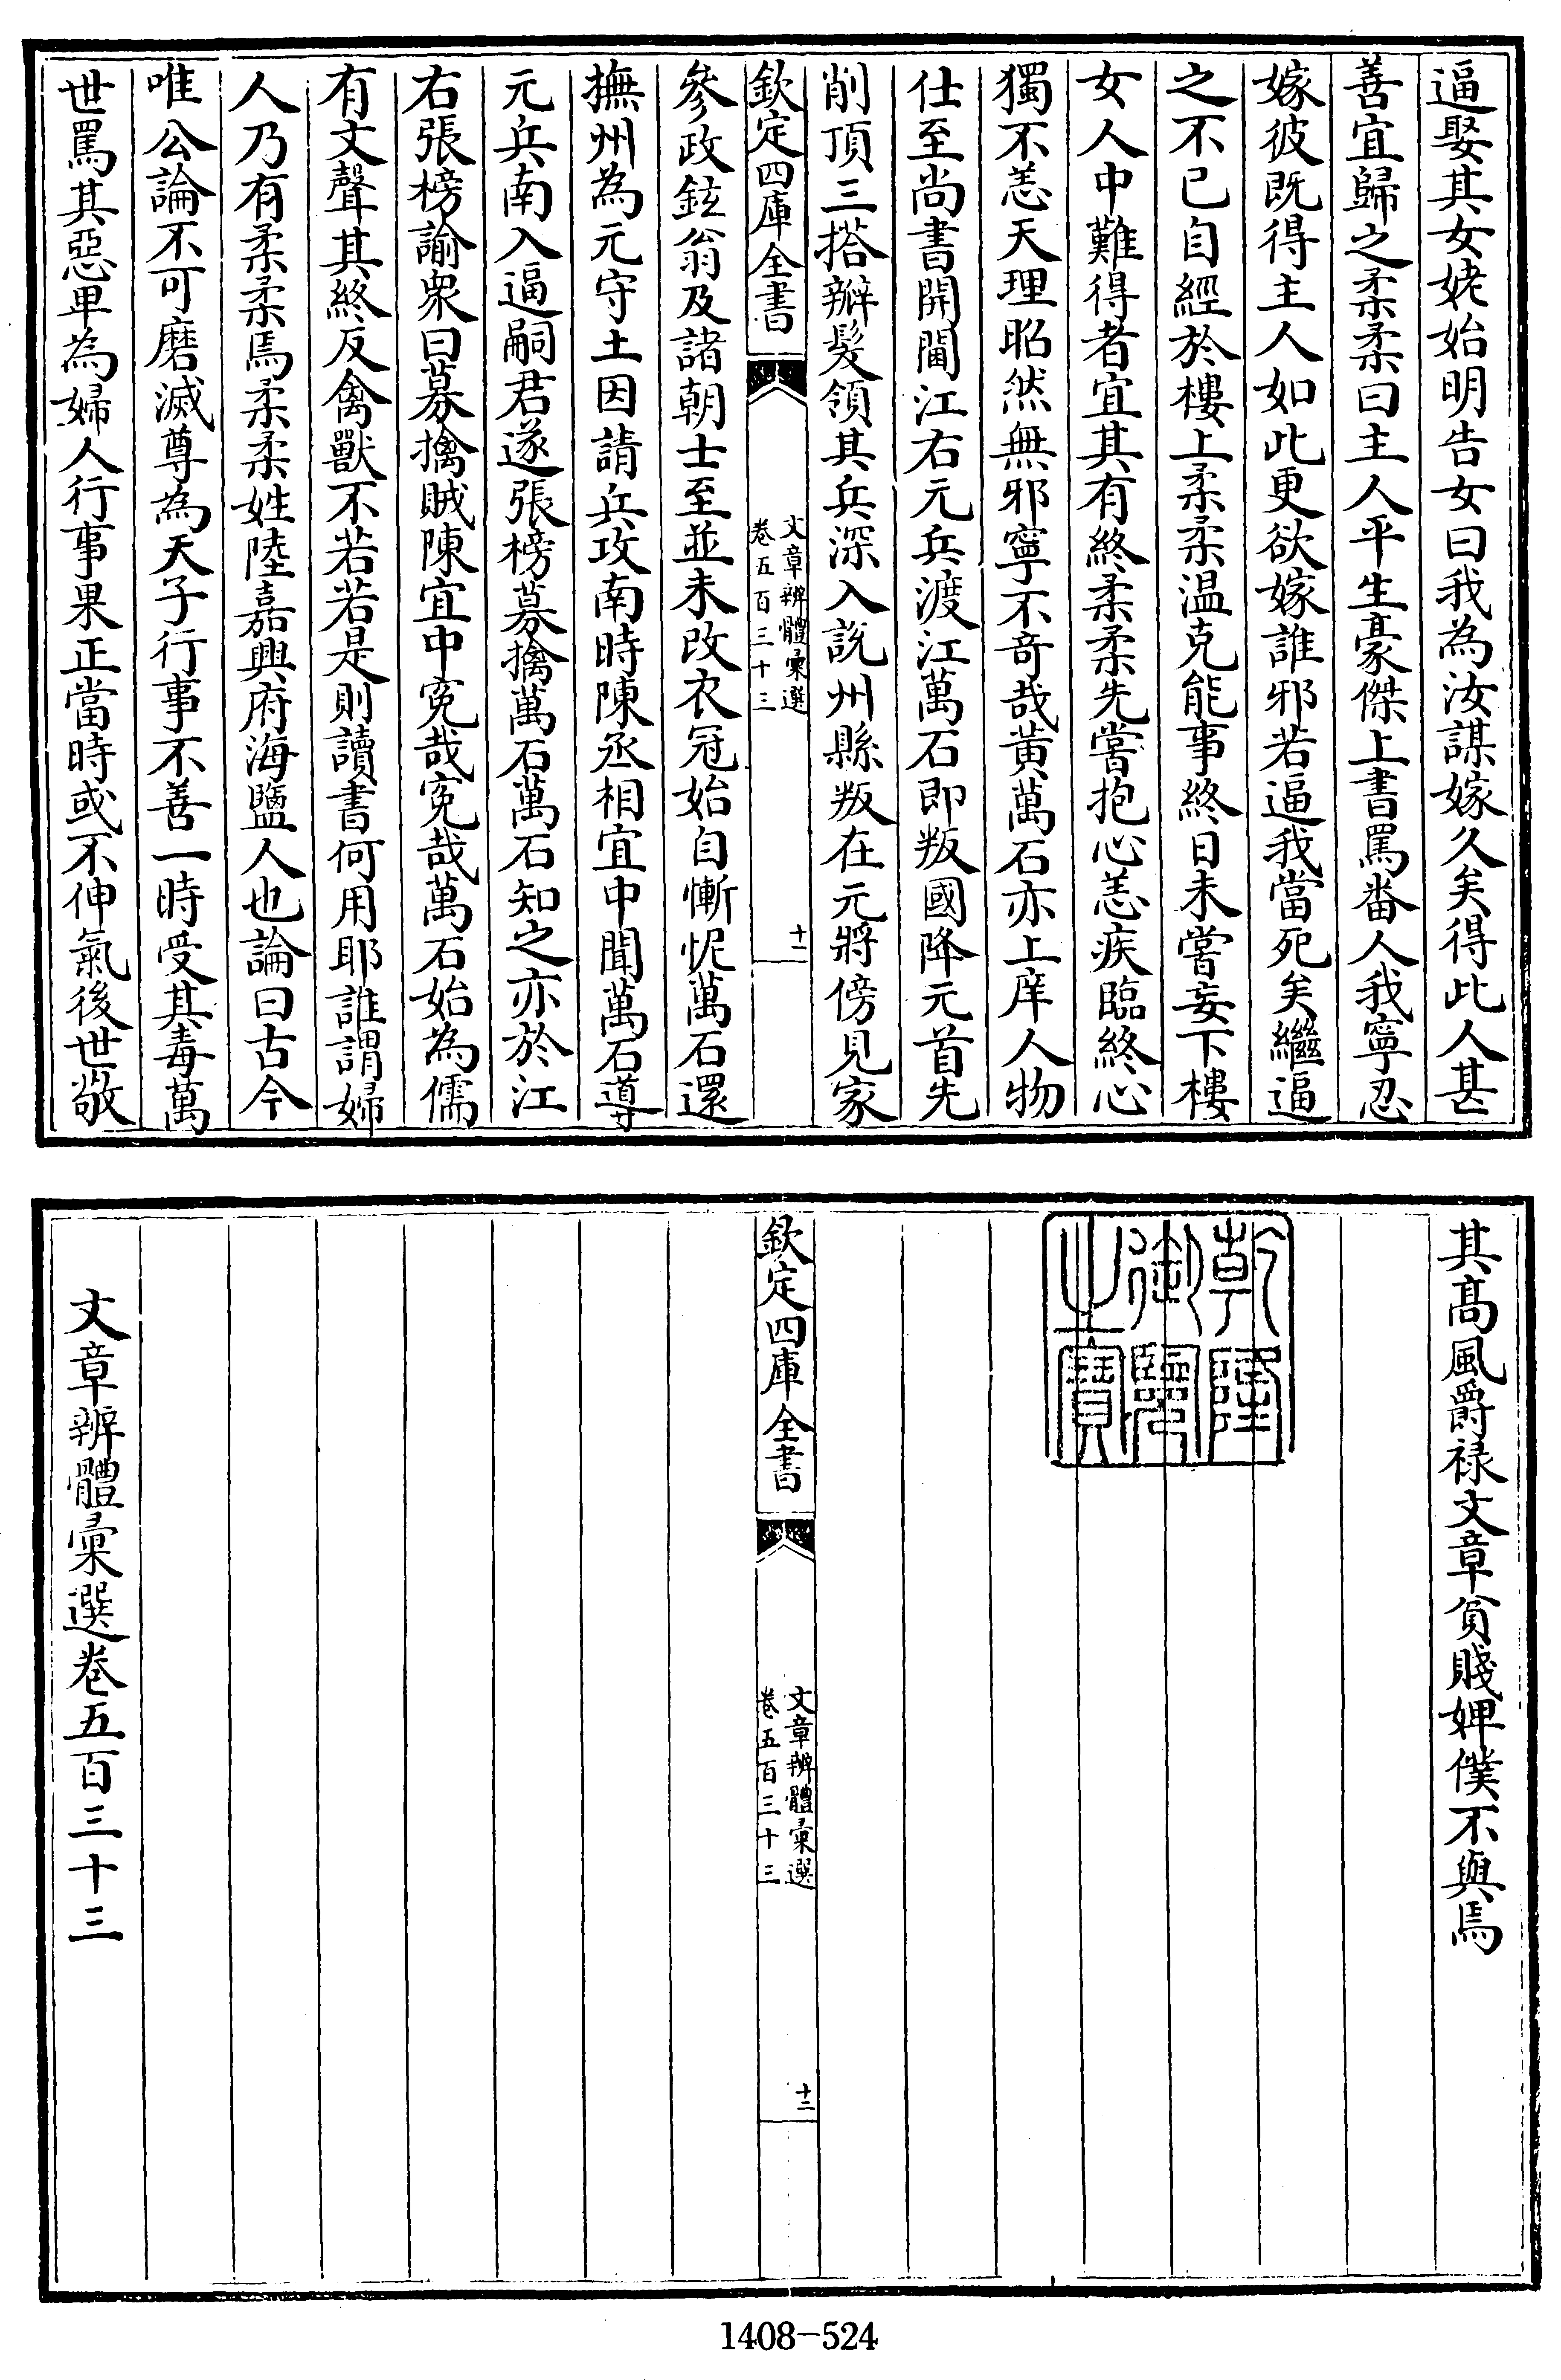 逼娶其女姥始明告女曰我為汝謀嫁久矣得此人甚
善宜歸之柔柔曰主人平生豪傑上書罵畨人我寧忍
嫁彼既得主人如此更欲嫁誰邪若逼我當死矣繼逼
之不已自經於樓上柔柔温克能事終日未嘗妄下樓
女人中難得者宜其有終柔柔先嘗抱心恙疾臨終心
獨不恙天理昭然無邪寧不奇哉黄萬石亦上庠人物
仕至尚書開閫江右元兵渡江萬石即叛國降元首先
削頂三搭辮髮領其兵深入説州縣叛在元將傍見家
欽定四庫全書
文章辨體彙選
卷五百三十三
十一
參政鉉翁及諸朝士至並未改衣冠始自慚怩萬石還
撫州為元守土因請兵攻南時陳丞相宜中聞萬石導
元兵南入逼嗣君遂張榜募擒萬石萬石知之亦於江
右張榜諭衆曰募擒賊陳宜中寃哉寃哉萬石始為儒
有文聲其終反禽獸不若若是則讀書何用耶誰謂婦
人乃有柔柔焉柔柔姓陸嘉興府海鹽人也論曰古今
唯公論不可磨滅尊為天子行事不善一時受其毒萬
世罵其惡卑為婦人行事果正當時或不伸氣後世敬
其髙風爵禄文章貧賤婢僕不與焉
乾隆
御覽
之寶
欽定四庫全書
文章辨體彙選
卷五百三十三
十二
文章辨體彙選卷五百三十三
1408-524